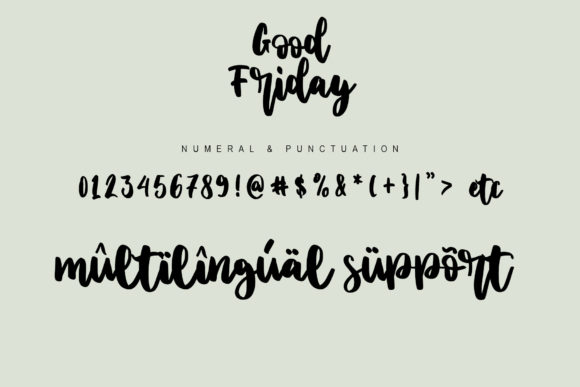 Good
Friday
NUMERAL & PUNCTUATION
0123456789!@#$%&*(+}|”> etc
mûltïlîngúäl süppõrt